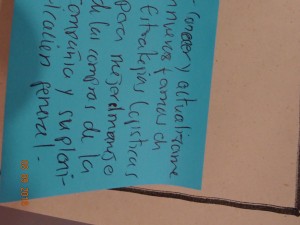 - conocer y actualizarme
en nuevas formas de
Estrategias logisticas
para mejor manejo
de las compras de la
compañia y su plani-
ficación general.